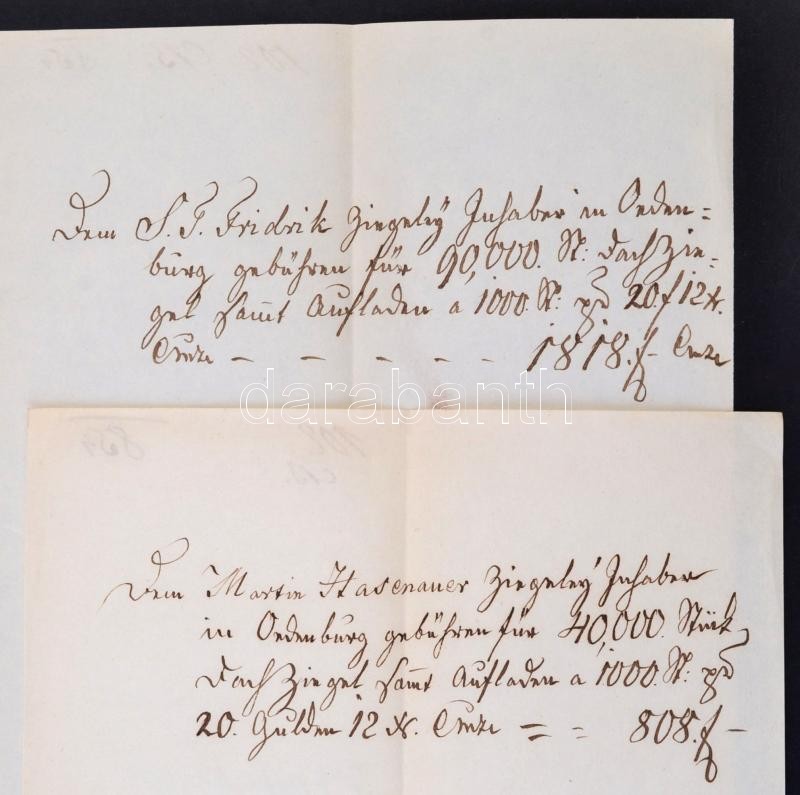 Dem S. T. Fridrik Ziegeley Inhaber in Oeden=
burg gebühren für 90,000. St: Dach Zie=
gel sam̅t Aufladen a 1000. St: pr 20 f 12 x.
Cmze — — — — — 1818. f — Cmze
darabanth
Dem Martin Hasenauer Ziegeley Inhaber
in Oedenburg gebühren für 40,000. Stük
Dach Ziegel sam̅t Aufladen a 1000. St: pr
20. Gulden 12 x. Cmze = = 808. f —